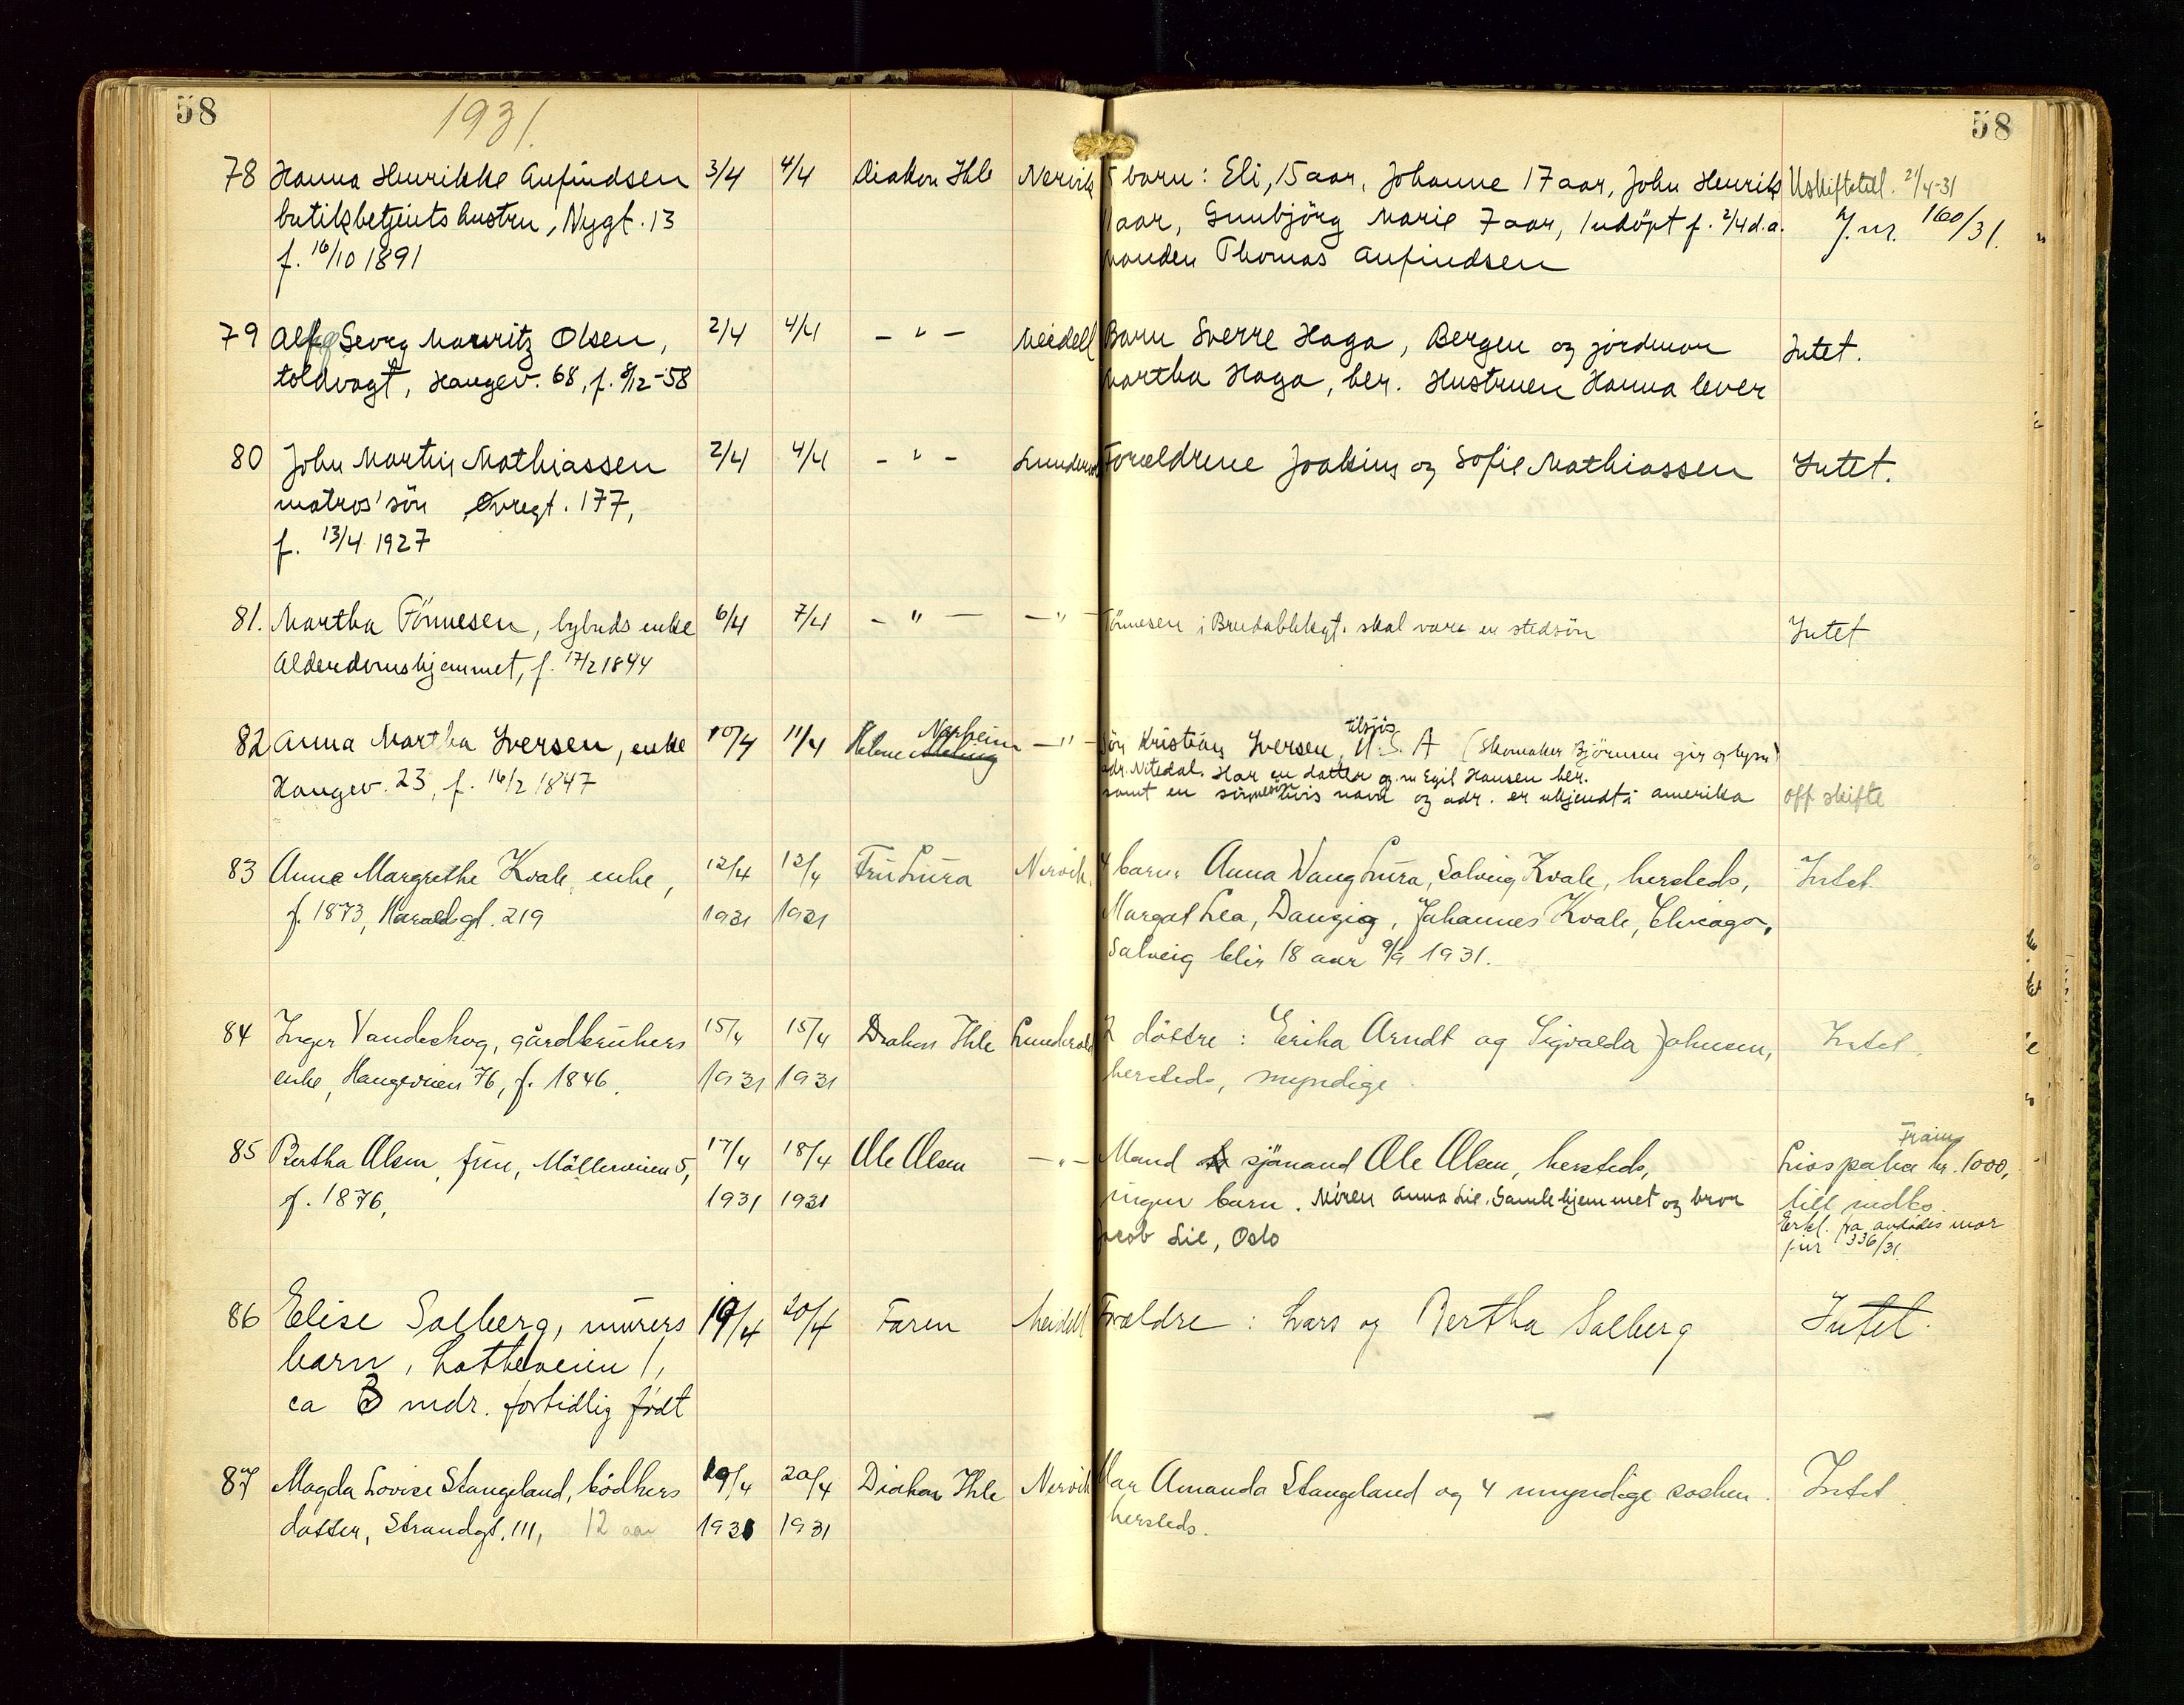 58
1931.
58
78 Hanna Henrikke Anfindsen 3/4 4/4 Diakon Ihle Nervik 5 barn: Eli, 15 aar, Johanne 17 aar, John Henrik Uskiftetill. 21/4-31
butiksbetjents hustru, Nygt. 13 11 aar, Gunbjörg Marie 7 aar, 1 udöpt f. 2/4 d.a. J.nr. 160/31.
f. 16/10 1891 manden Thomas Anfindsen
79 Georg Mauritz Olsen, 2/4 4/4 - " - Meidell Barn Sverre Haga, Bergen og jordmor Intet.
toldvagt, Haugev. 68, f. 8/12-58 Martha Haga, her. Hustruen Hanna lever
80 John Martin Mathiassen 2/4 4/4 - " - Forældrene Joakim og Sofie Mathiassen Intet.
matros' sön Övregt. 177,
f. 13/4 1927
81. Martha Tönnesen, bybuds enke 6/4 7/4 - " - - " - Tönnesen i Bredablikgt. skal være en stedsön Intet
Alderdomshjemmet, f. 17/2 1844
Narheim tilsjös
82 Anna Martha Iversen, enke 10/4 11/4 Helene - " - Sön Kristian Iversen, U.S.A (Skomaker Björnsen gir oplysn)
adr. Nitedal. Har en datter g.m Egil Hansen her.
Haugev. 23, f. 16/2 1847 samt en hvis navn og adr. er ukjendt i amerika off skifte
83 Anna Margrethe Kvale, enke, 12/4 12/4 Fru Lura Nervik. 4 barn: Anna Vaug Lura, Solveig Kvale, hersteds, Intet.
f. 1873, Haraldsgt. 219 1931 1931 Margot Lea, Danzig, Johannes Kvale, Chicago,
Solveig blir 18 aar 9/9 1931.
84 Inger Vandeskog, gårdbrukers 15/4 15/4 Diakon Ihle 2 döttre: Erika Arndt og Sigvalda Johnsen, Intet.
enke, Haugeveien 76, f. 1846. 1931 1931 hersteds, myndige
Fram
85 Bertha Olsen, frue, Mölleveien 5, 17/4 18/4 Ole Olsen - " - Mand sjömand Ole Olsen, hersteds, Livspolice kr. 1000,
f. 1876, 1931 1931 ingen barn. Moren Anna Lie, Gamlehjemmet og bror till
Jacob Lie, Oslo Erkl. fra avdödes mor
jnr 336/31.
86 Elise Solberg, murers 19/4 20/4 Faren Meidell Forældre: Lars og Bertha Solberg Intet.
barn, 1,
ca 3 mdr. fortidlig födt
87 Magda Lovise Stangeland, bödkers 19/4 20/4 Diakon Ihle Nervik Mor Amanda Stangeland og 4 umyndige sösken Intet
datter, Strandgt. 111, 12 aar 1931 1931 hersteds.